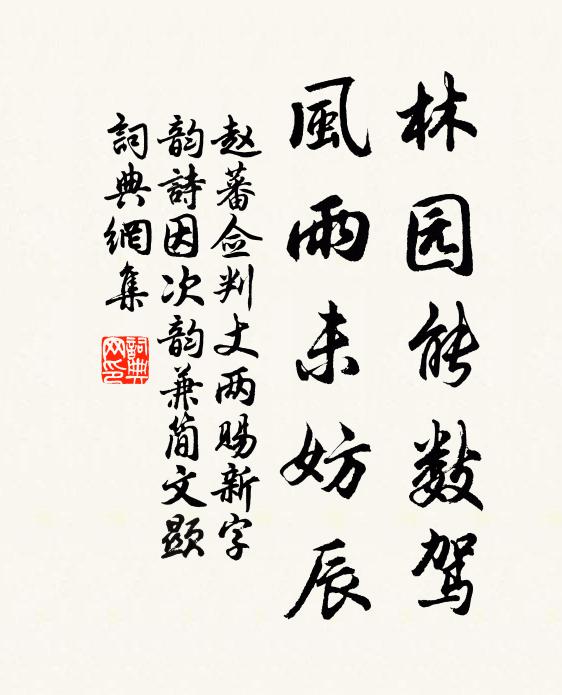 林园能数驾
風雨未妨辰
赵蕃佥判丈两赐新字
韵詩因次韵兼简文顯
詞典網集
詞典网印